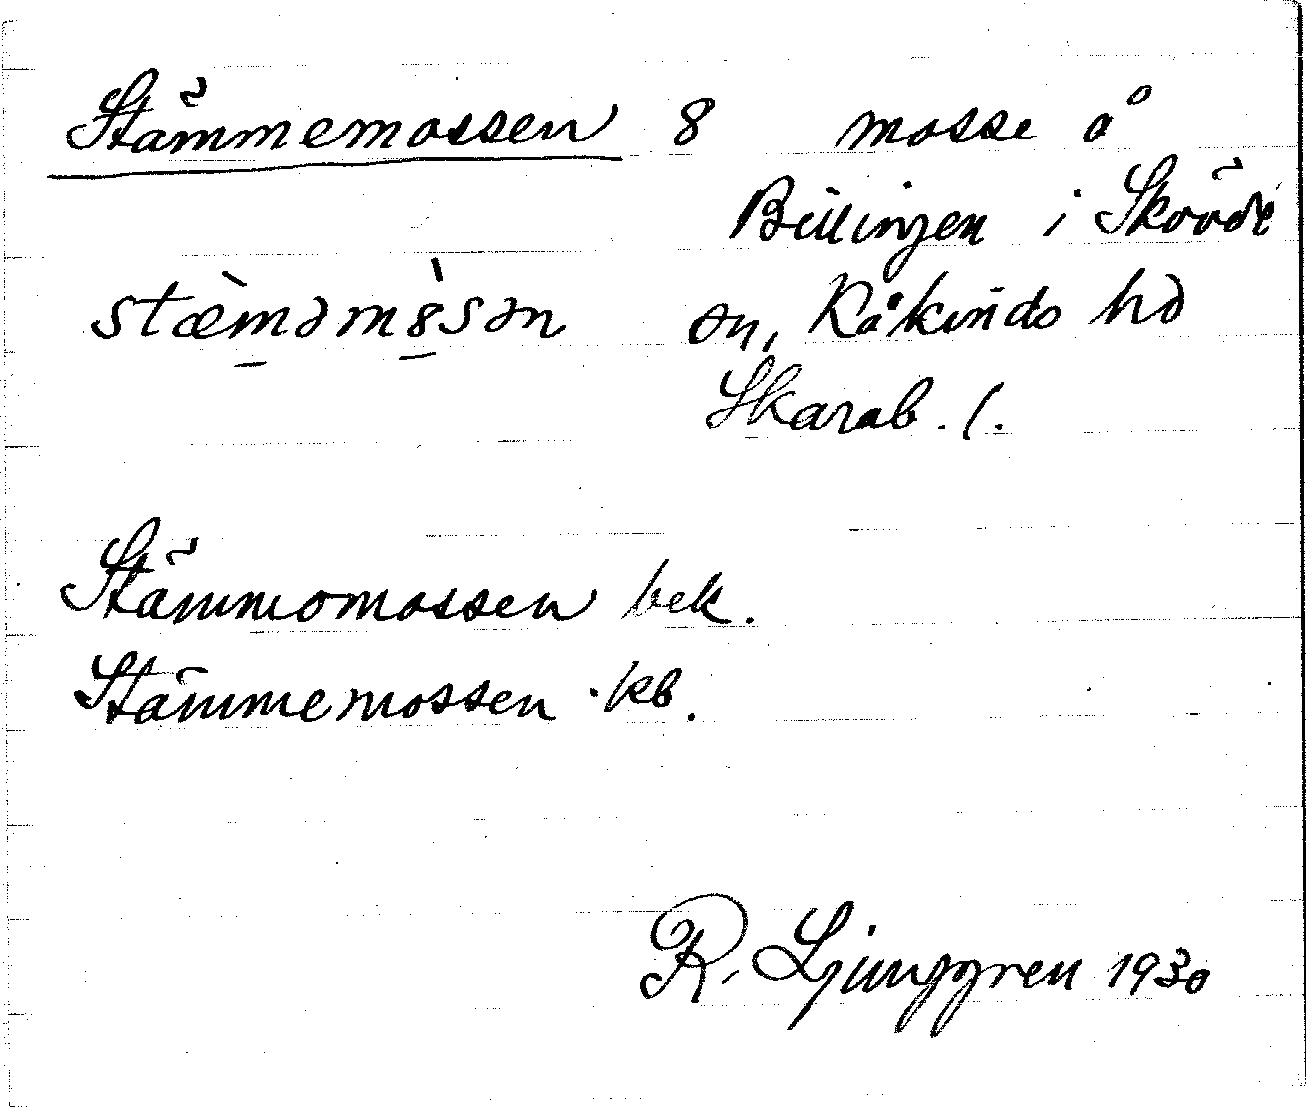 Stämmemossen 8 mosse å
Billingen i Skövde
stæ̀məm8̀sən sn, Kåkinds hd
Skarab. l.
Stämmomossen bek.
Stämmemossen kb.
R. Ljunggren 1930